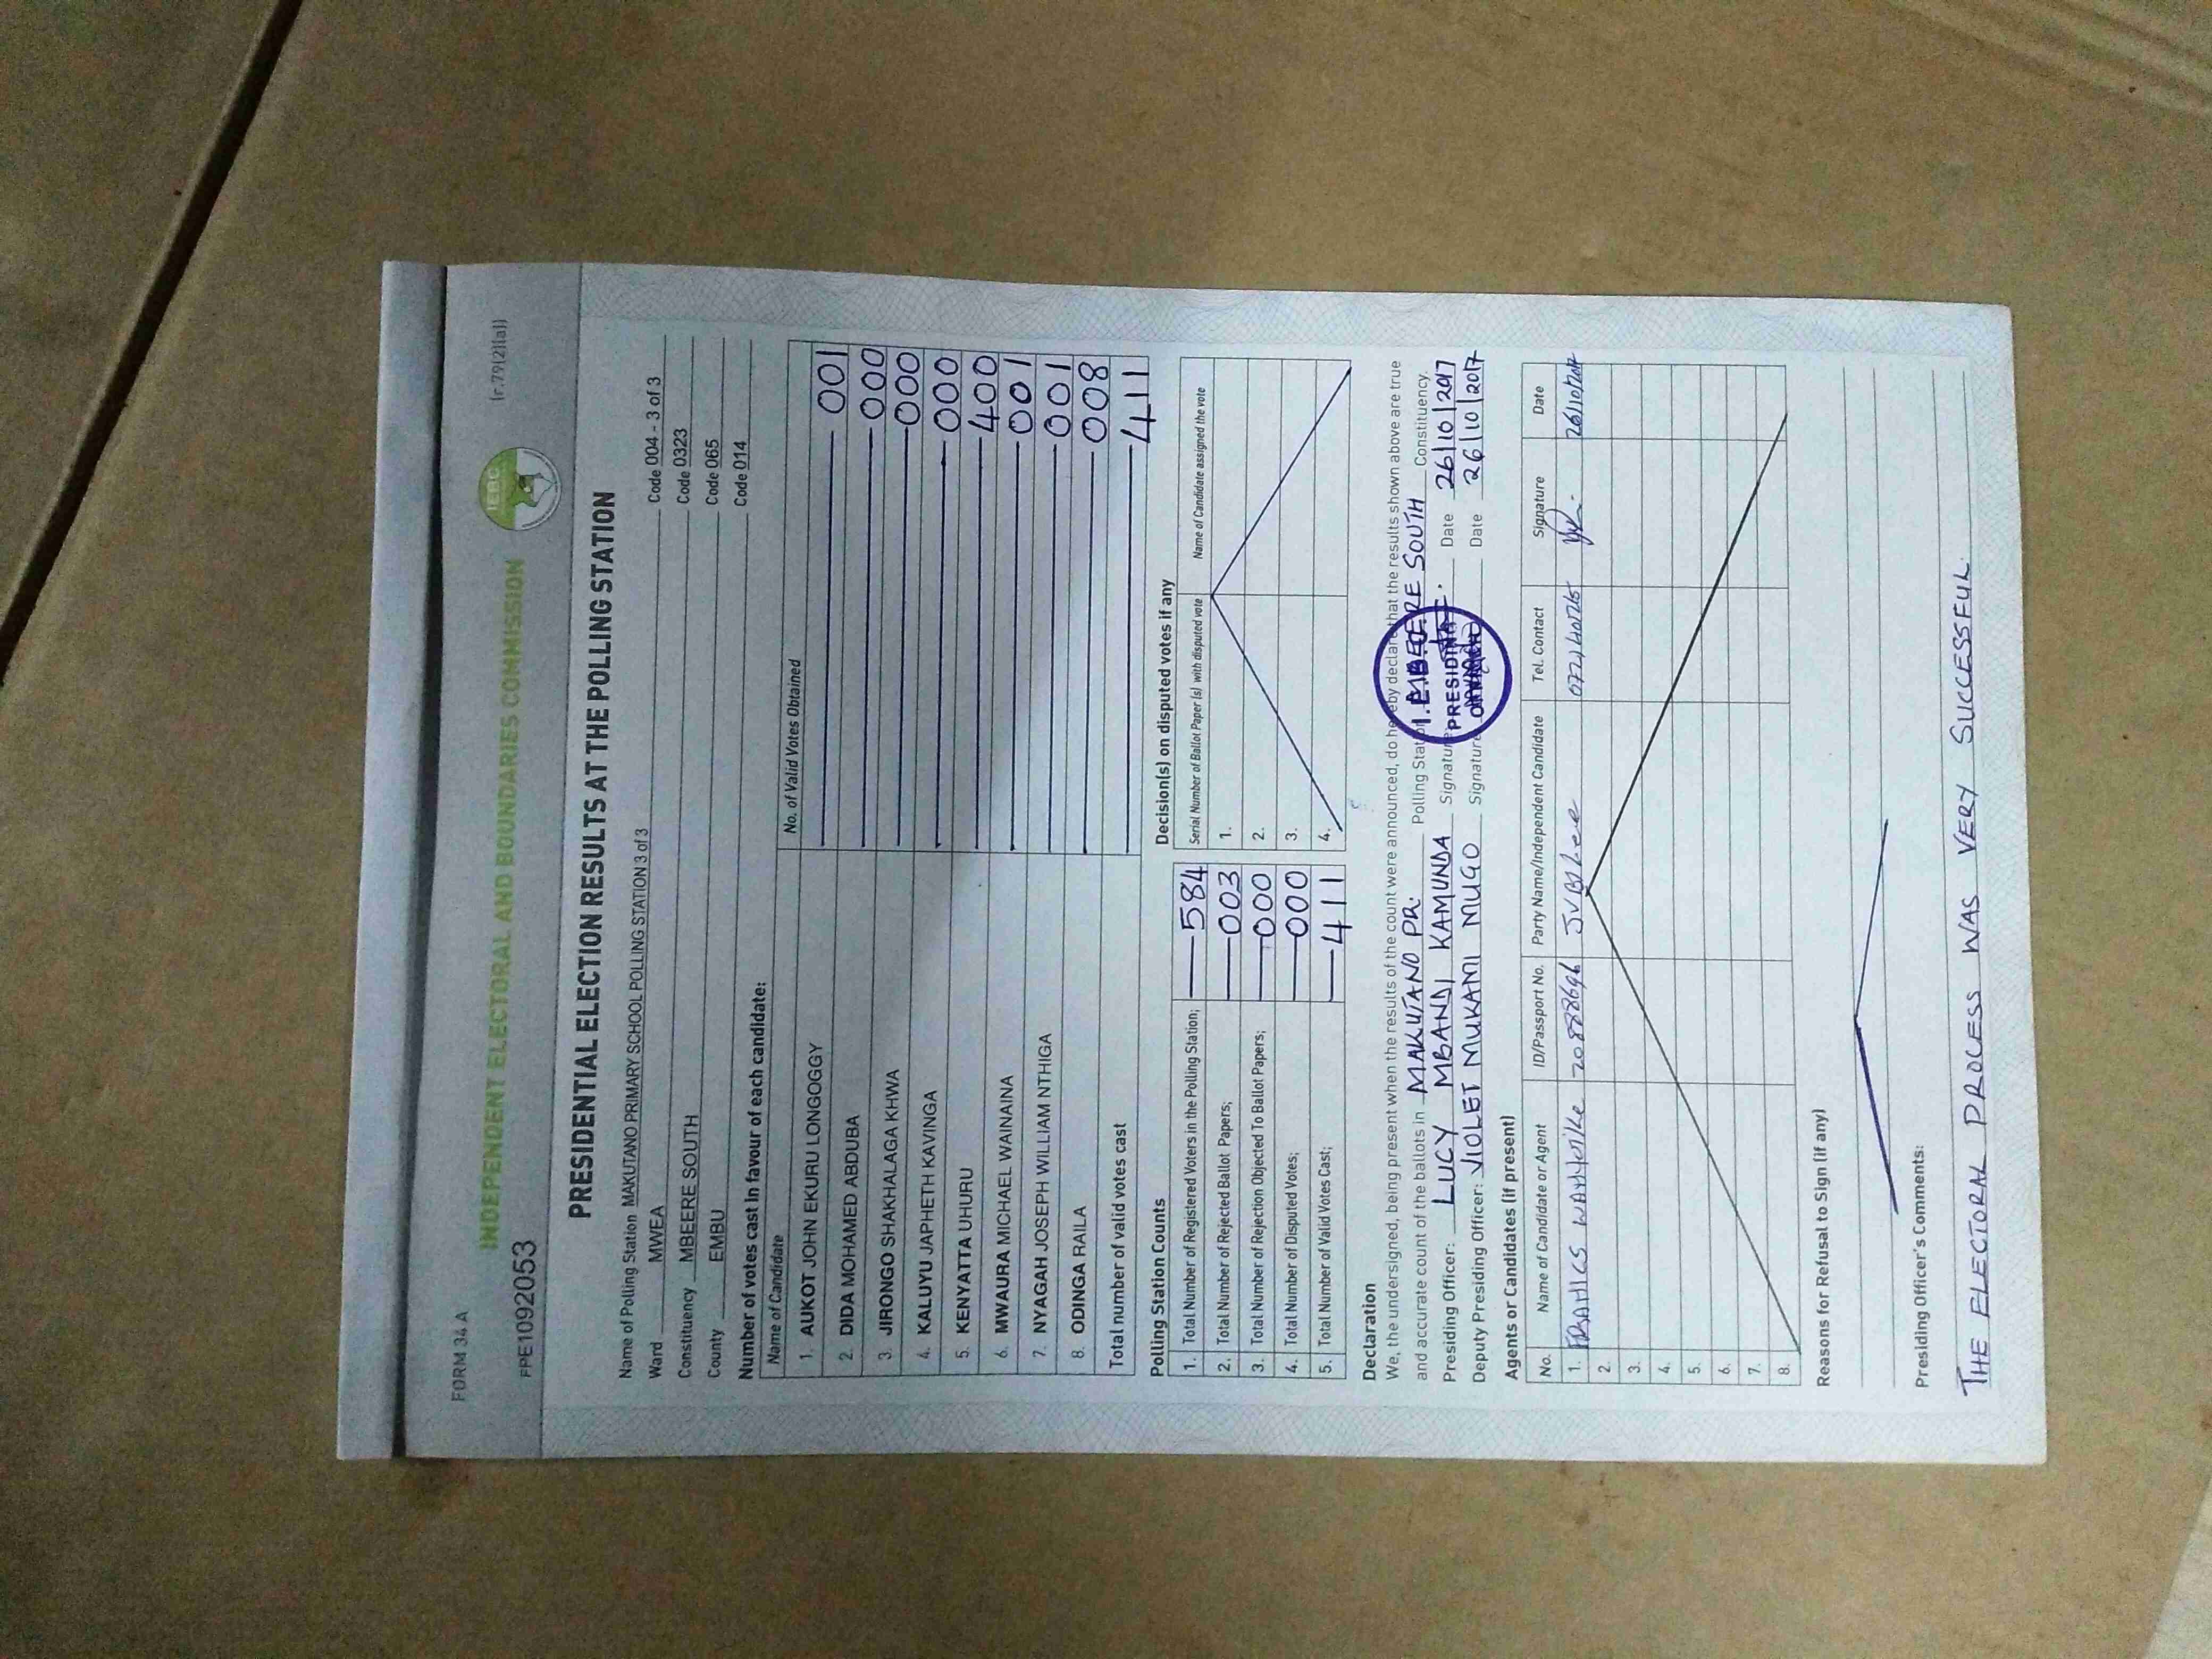 FORM 34 A
(r.79(2)(a))
INDEPENDENT ELECTORAL AND BOUNDARIES COMMISSION
IEBC
FPE1092053
PRESIDENTIAL ELECTION RESULTS AT THE POLLING STATION
Name of Polling Station MAKUTANO PRIMARY SCHOOL POLLING STATION 3 of 3 Code 004 - 3 of 3
Ward MWEA Code 0323
Constituency MBEERE SOUTH Code 065
County EMBU Code 014
Number of votes cast In favour of each candidate:
Name of Candidate No. of Valid Votes Obtained
1. AUKOT JOHN EKURU LONGOGGY 001
2. DIDA MOHAMED ABDUBA 000
3. JIRONGO SHAKHALAGA KHWA 000
4. KALUYU JAPHETH KAVINGA 000
5. KENYATTA UHURU 400
6. MWAURA MICHAEL WAINAINA 001
7. NYAGAH JOSEPH WILLIAM NTHIGA 001
8. ODINGA RAILA 008
Total number of valid votes cast 411
Polling Station Counts
1. Total Number of Registered Voters in the Polling Station; 584
2. Total Number of Rejected Ballot Papers; 003
3. Total Number of Rejection Objected To Ballot Papers; 000
4. Total Number of Disputed Votes; 000
5. Total Number of Valid Votes Cast; 411
Decision(s) on disputed votes if any
Serial Number of Ballot Paper (s) with disputed vote Name of Candidate assigned the vote
1.
2.
3.
4.
Declaration
We, the undersigned, being present when the results of the count were announced, do hereby declare that the results shown above are true
and accurate count of the ballots in MAKUTANO PR. Polling Station MBEERE SOUTH Constituency.
Presiding Officer: LUCY MBANDI KAMUNDA Signature: Date 26/10/2017
Deputy Presiding Officer: VIOLET MUKAMI MUGO Signature Date 26/10/2017
PRESIDING
Agents or Candidates (if present)
No. Name of Candidate or Agent ID/Passport No. Party Name/Independent Candidate Tel. Contact Signature Date
1. 20888696 JUBILEE 26/10/2017
2.
3.
4.
5.
6.
7.
8.
Reasons for Refusal to Sign (if any)
Presiding Officer's Comments:
THE ELECTORAL PROCESS WAS VERY SUCCESSFUL.